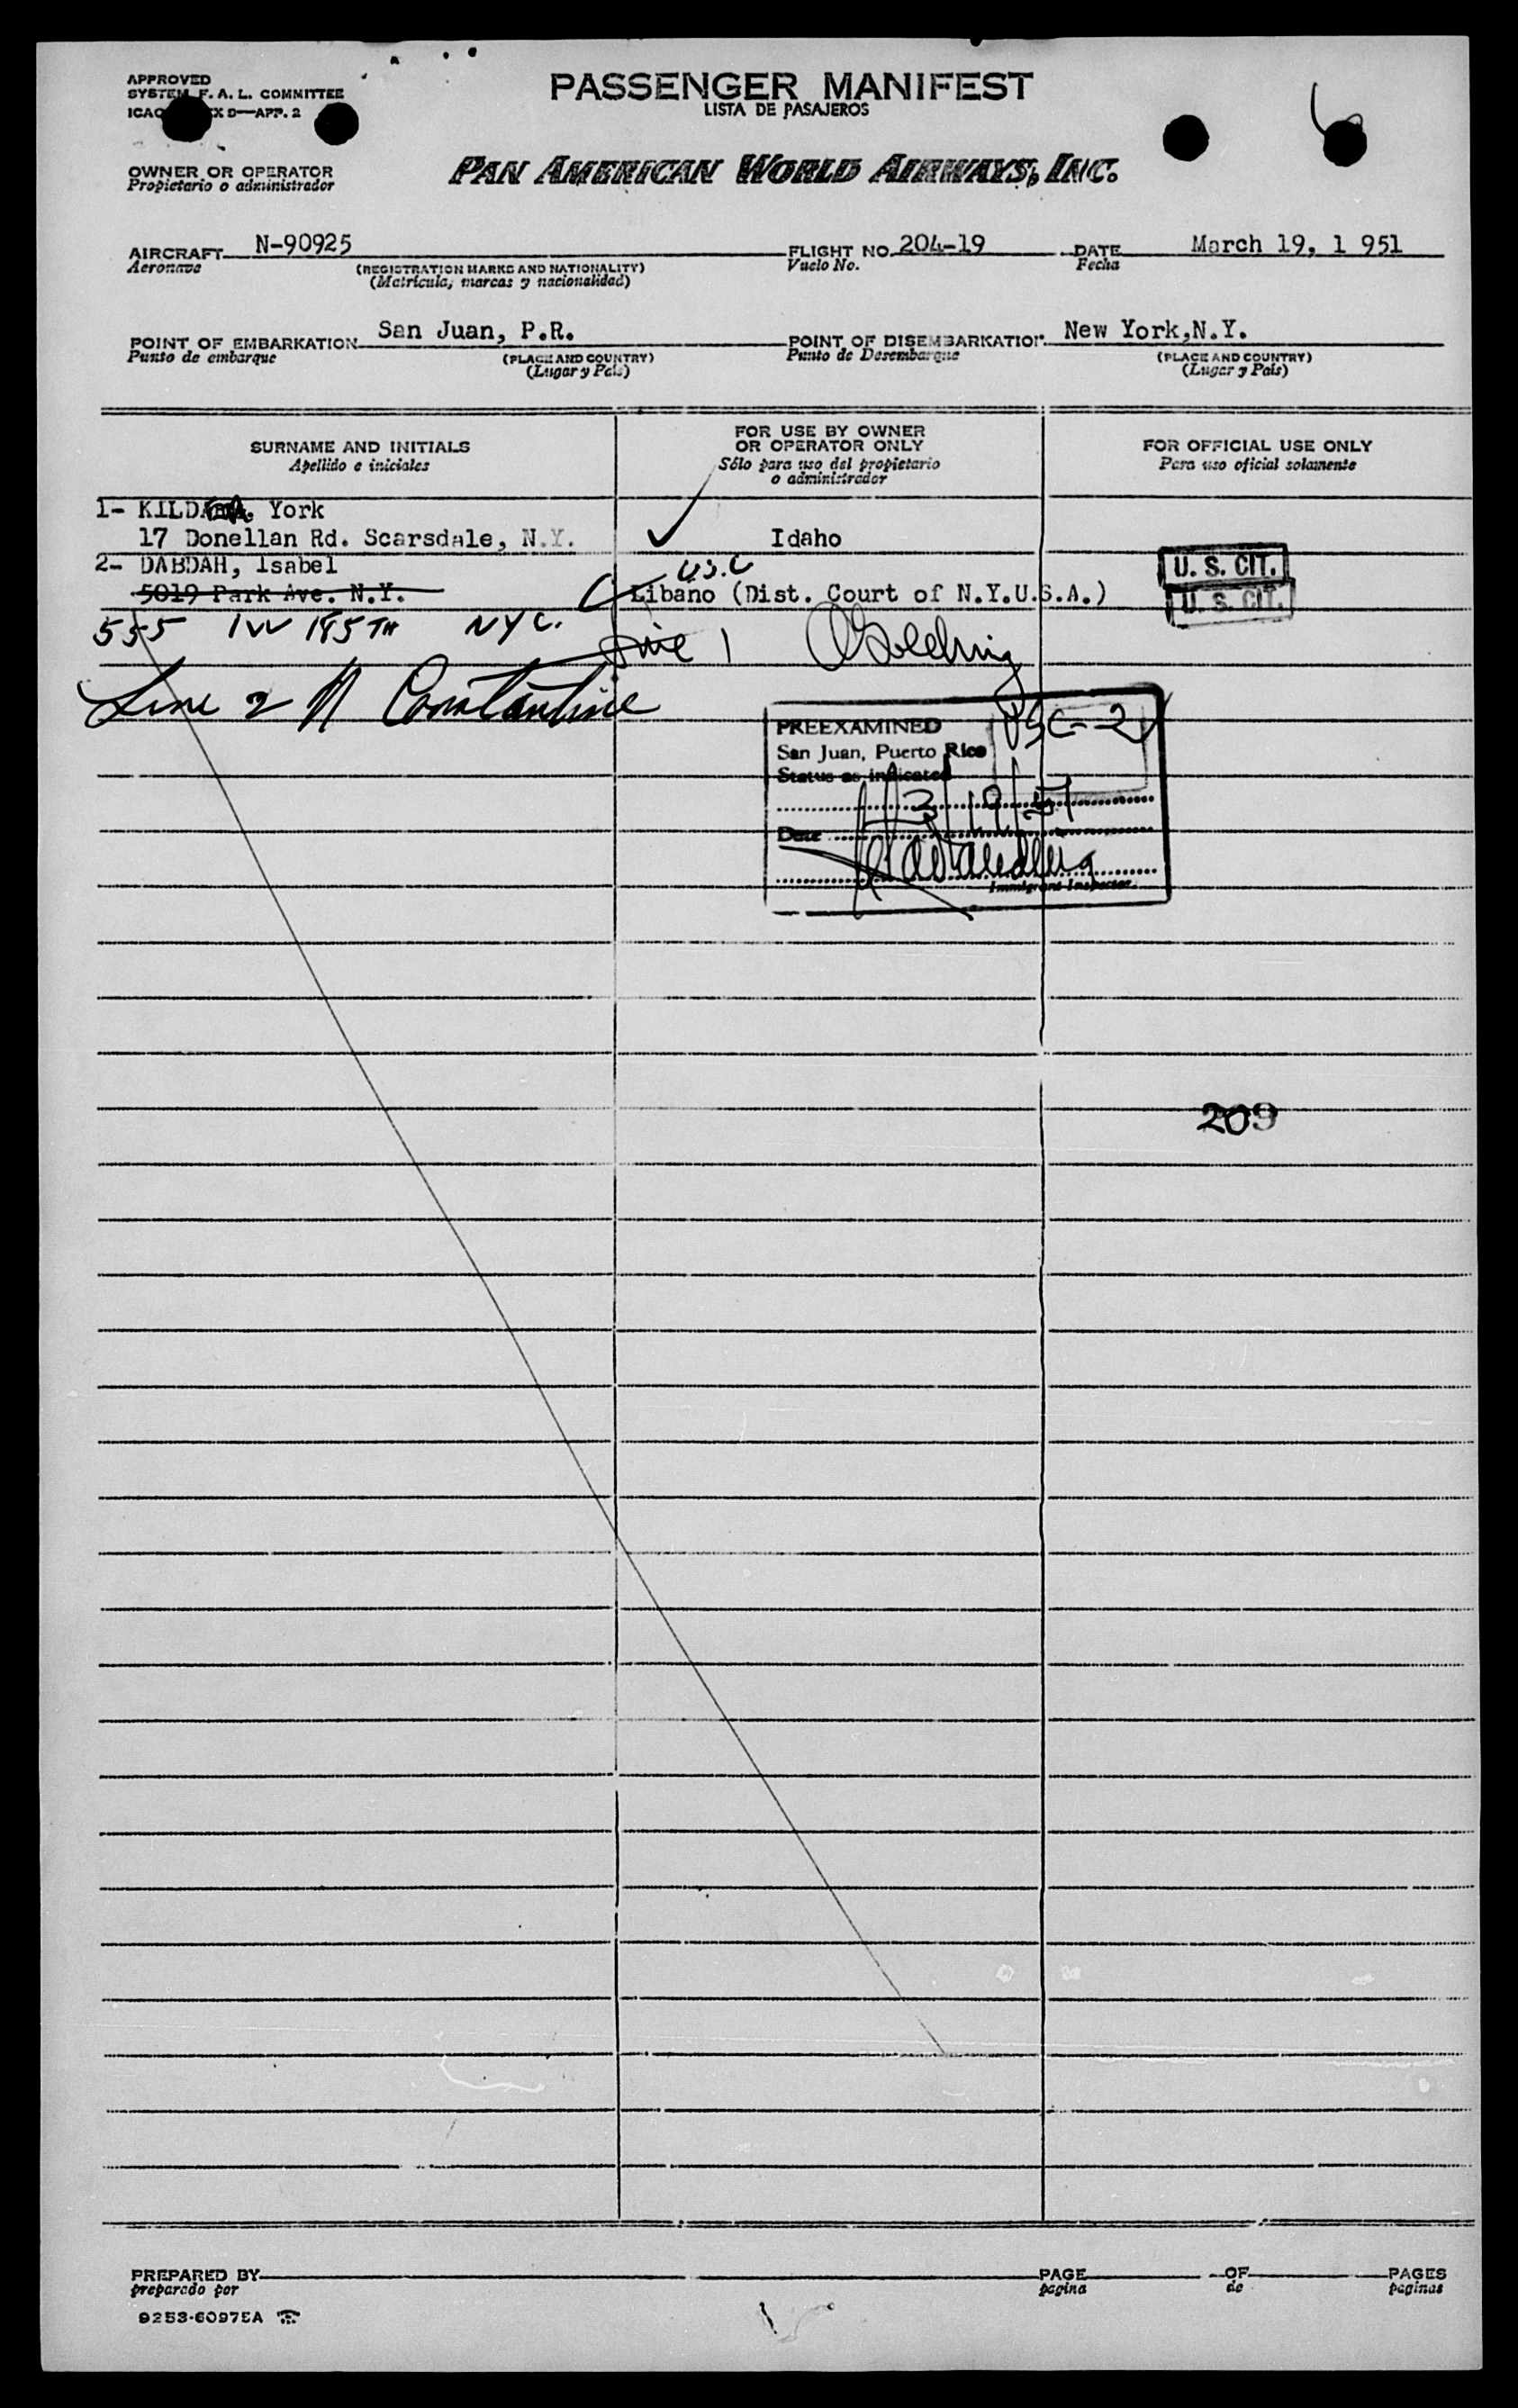 APPROVED
SYSTEM F. A. L. COMMITTEE
D—APP. 2
PASSENGER MANIFEST
LISTA DE PASAJEROS
OWNER OR OPERATOR
Propietario o administrador
PAN AMERICAN WORLD AIRWAYS, INC.
AIRCRAFT N-90925 FLIGHT NO. 204-19 DATE March 19, 1 951
Aeronave (REGISTRATION MARKS AND NATIONALITY) Vuelo No. Fecha
(Matrícula, marcas y nacionalidad)
POINT OF EMBARKATION San Juan, P.R. POINT OF DISEMBARKATION New York,N.Y.
Punto de embarque (PLACE AND COUNTRY) Punto de Desembarque (PLACE AND COUNTRY)
(Lugar y País) (Lugar y País)
SURNAME AND INITIALS
Apellido e iniciales
FOR USE BY OWNER
OR OPERATOR ONLY
Sólo para uso del propietario
o administrador
FOR OFFICIAL USE ONLY
Para uso oficial solamente
1- York
17 Donellan Rd. Scarsdale, N.Y. Idaho
2- DABDAH, Isabel U.S.C U. S. CIT.
5019 Park Ave. N.Y. Libano (Dist. Court of N.Y.U.S.A.) U. S. CIT.
555 W 185TH NYC.
Line 1
Line 2 N Constantine
PREEXAMINED
San Juan, Puerto Rico
Status as indicated
3/19/51
Date
Immigrant Inspector.
209
PREPARED BY PAGE OF PAGES
preparado por página de páginas
9253-6097EA